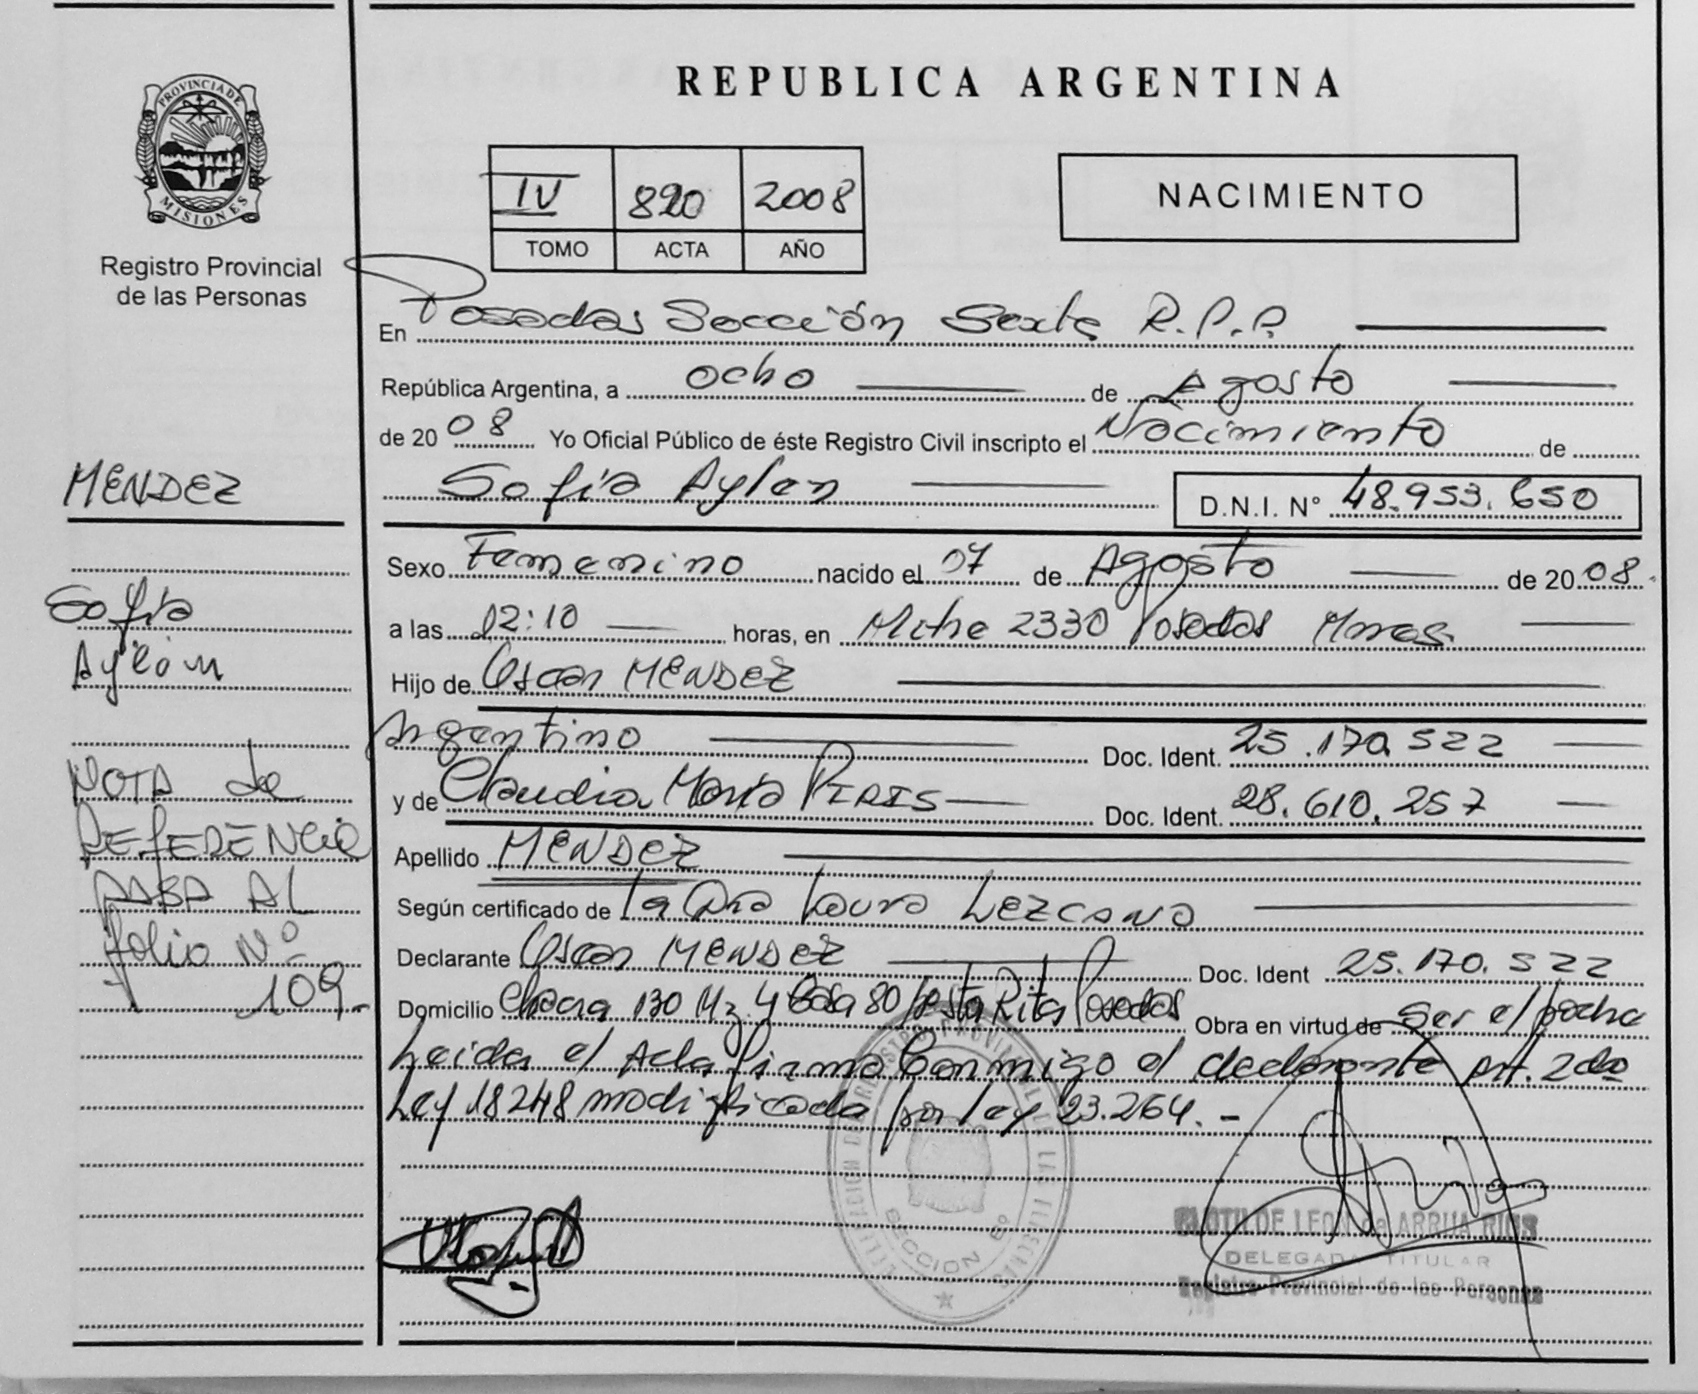 PROVINCIA DE
MISIONES
Registro Provincial
de las Personas
MENDEZ
Sofía
Aylén
NOTA de
REFERENCIA
PASA AL
folio Nº
109.-
REPUBLICA ARGENTINA
IV 820 2008
TOMO ACTA AÑO
NACIMIENTO
En Posadas Sección Sexta R.P.P.
República Argentina, a ocho de Agosto
de 2008 Yo Oficial Público de éste Registro Civil inscripto el Nacimiento de
Sofía Aylen D.N.I. Nº 48.953.650
Sexo Femenino nacido el 07 de Agosto de 2008.
a las 12:10 horas, en Mitre 2330 Posadas Mnes.
Hijo de Oscar MENDEZ
Argentino Doc. Ident. 25.170.522
y de Claudia María PIRIS Doc. Ident. 28.610.257
Apellido MENDEZ
Según certificado de la Dra Laura LEZCANO
Declarante Oscar MENDEZ Doc. Ident 25.170.522
Domicilio Chacra 130 Mz. 4 Casa 80 Santa Rita Posadas Obra en virtud de Ser el padre
Leída el Acta firma Conmigo el declarante Art. 2do
Ley 18248 modificada por ley 23.264.-
SECCION 6º
CLOTILDE LEON de ARRUA RIOS
DELEGADA TITULAR
Registro Provincial de las Personas